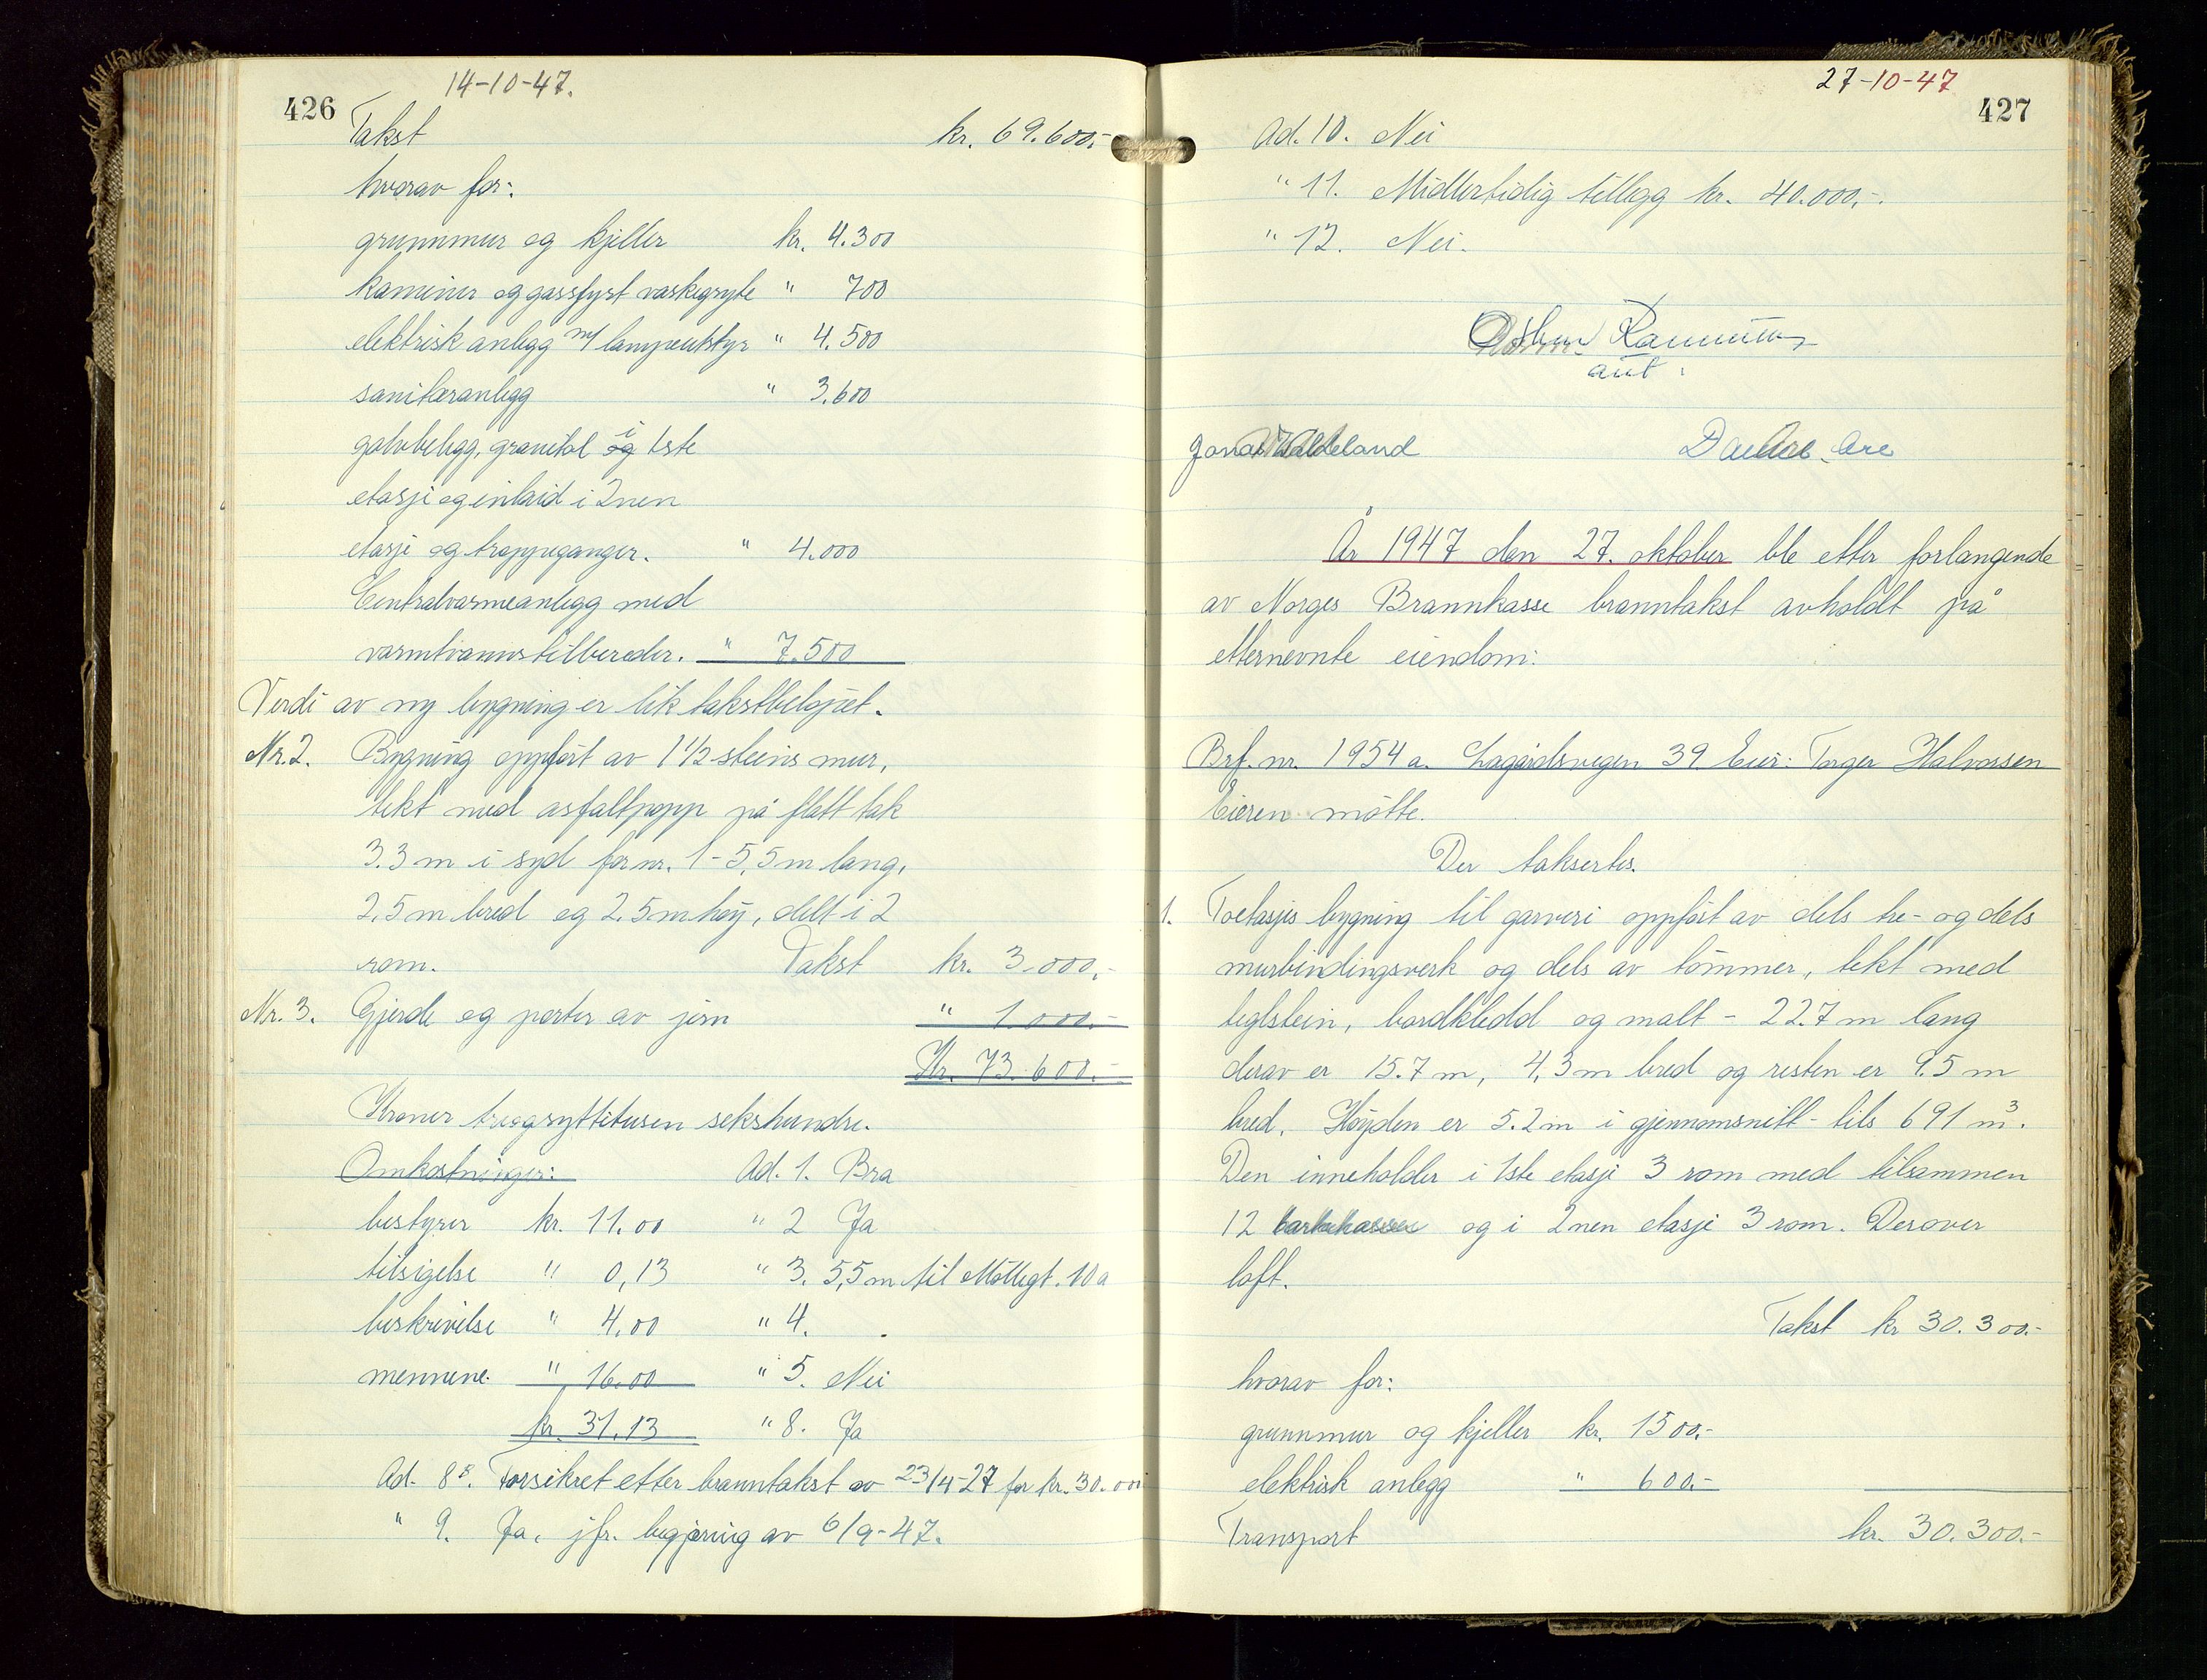 14-10-47.
426
Takst kr. 69.600.-
hvorav for:
grunnmur og kjeller kr. 4.300
kaminer og gassfyrt vaskegryte " 700
elektrisk anlegg m/ lampeutstyr " 4.500
sanitæranlegg " 3.600
golvbelegg, granitol og i 1ste
etasje og inlaid i 2nen
etasje og trappeganger. " 4.000
Centralvarmeanlegg med
varmtvannstilbereder. " 7.500
Verdi av ny bygning er lik takstbeløpet.
Nr. 2. Bygning oppført av 1 1/2 steins mur,
tekt med asfaltpapp på flatt tak
3.3 m i syd for nr. 1 - 5,5 m lang,
2,5 m bred og 2.5 m høy, delt i 2
rom. Takst kr. 3.000.-
Nr. 3. Gjerde og porter av jern " 1.000.-
Kr. 73.600.-
Kroner treogsyttitusen sekshundre.
Omkostninger: Ad. 1. Bra
bestyrer kr. 11.00 " 2 Ja
tilsigelse " 0,13 " 3. 5,5 m til Møllegt. 10 a
beskrivelse " 4,00 " 4.
mennene. " 16.00 " 5. Nei
kr. 31.13 " 8. Ja
Ad. 8. Forsikret etter branntakst av 23/4-27 for kr. 30.000
" 9. Ja, jfr. begjæring av 6/9-47.
27-10-47
427
Ad. 10. Nei
" 11. Midlertidig tillegg kr. 40.000,-.
" 12. Nei.
Rasmussen
aut.
Jonas Waldeland
År 1947 den 27. oktober ble etter forlangende
av Norges Brannkasse branntakst avholdt på
etternevnte eiendom:
Brf. nr. 1954 a. Lagårdsvegen 39. Eier: Torger Halvorsen
Eieren møtte.
Der taksertes.
1. Toetasjes bygning til garveri oppført av dels tre- og dels
murbindingsverk og dels av tømmer, tekt med
teglstein, bordkledd og malt - 22.7 m lang
derav er 15.7 m, 4,3 m bred og resten er 9.5 m
bred. Høyden er 5.2 m i gjennomsnitt - tils 691 m³.
Den inneholder i 1ste etasje 3 rom med tilsammen
12 barkekasser og i 2nen etasje 3 rom. Derover
loft.
Takst kr 30.300.-
hvorav for:
grunnmur og kjeller kr. 1500.-
elektrisk anlegg " 600.-
Transport kr. 30.300.-